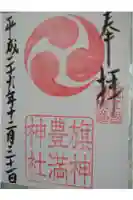 奉拝
旗神
豊満
神社
平成二十六年十二月二十二日